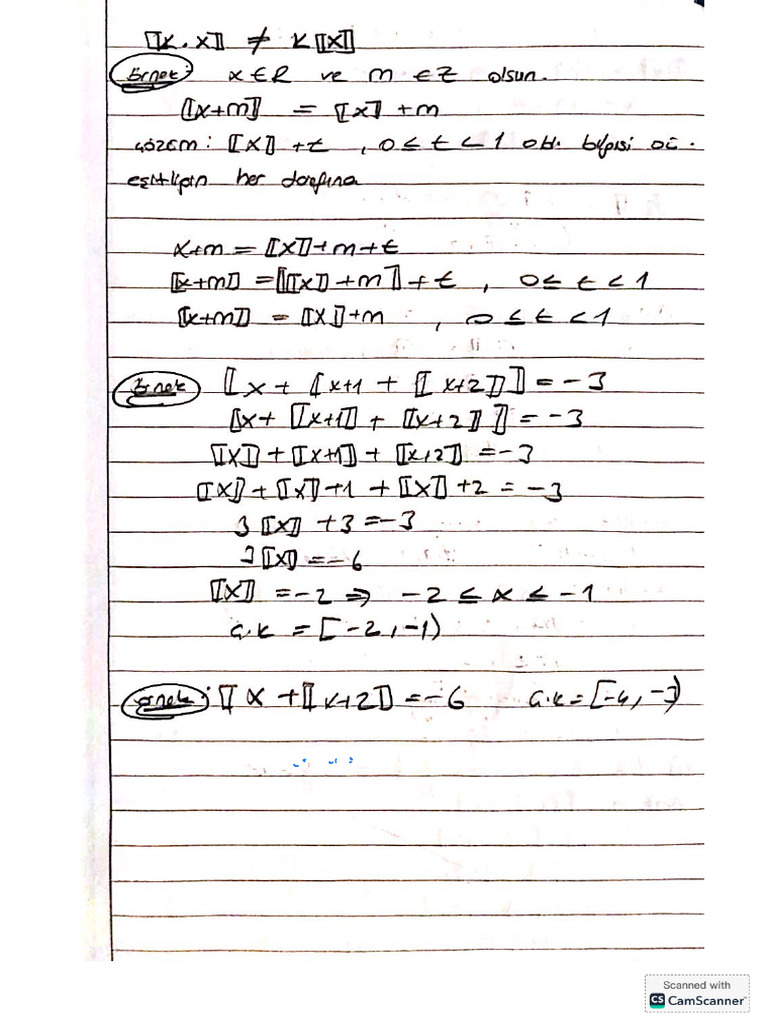 ⟦k.x⟧ ≠ k⟦x⟧
Örnek: x ∈ R ve m ∈ Z olsun.
⟦x+m⟧ = ⟦x⟧ + m
çözüm: ⟦x⟧ + t , 0 ≤ t < 1 old. bilgisi
eşitliğin her tarafına
x+m = ⟦x⟧+m+t
⟦x+m⟧ = ⟦⟦x⟧+m⟧+t , 0 ≤ t < 1
⟦x+m⟧ = ⟦x⟧+m , 0 ≤ t < 1
Örnek ⟦x + ⟦x+1 + ⟦x+2⟧⟧ = -3
⟦x + ⟦x+1⟧ + ⟦x+2⟧⟧ = -3
⟦x⟧ + ⟦x+1⟧ + ⟦x+2⟧ = -3
⟦x⟧ + ⟦x⟧+1 + ⟦x⟧+2 = -3
3⟦x⟧ + 3 = -3
3⟦x⟧ = -6
⟦x⟧ = -2 ⇒ -2 ≤ x < -1
Ç.K = [-2, -1)
Örnek: ⟦x + ⟦x+2⟧ = -6 Ç.K = [-4, -3)
Scanned with
CS CamScanner